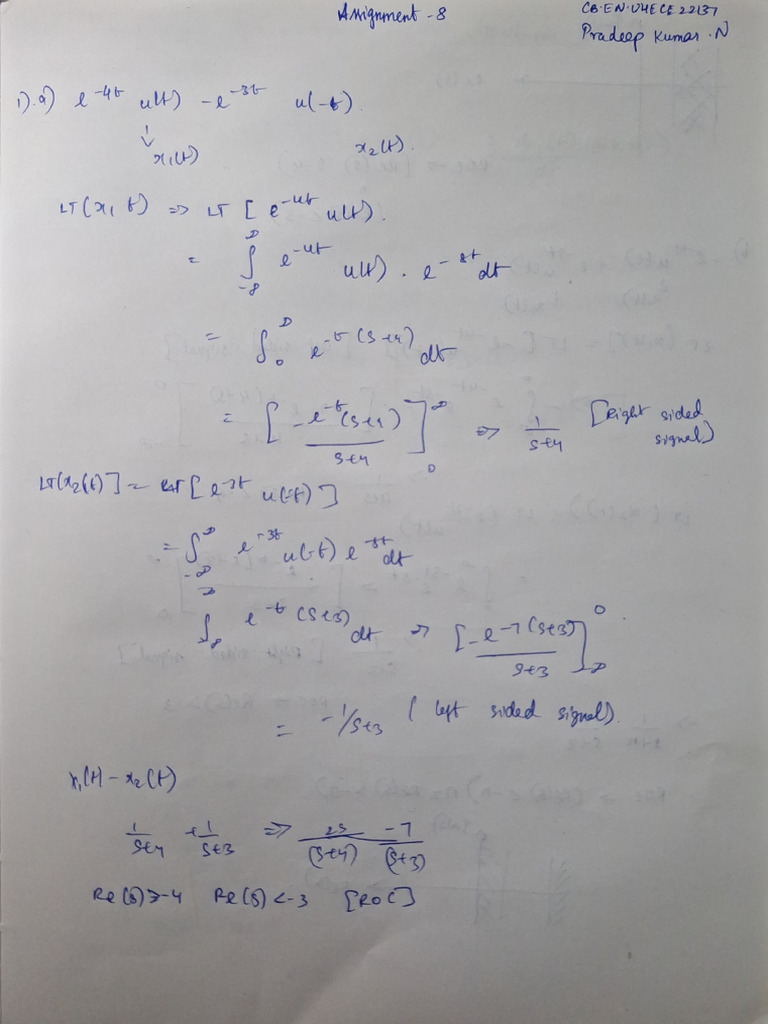 Assignment - 8
CB.EN.U4ECE22137
Pradeep Kumar .N
1). a) e^{-4t} u(t) - e^{-3t} u(-t).
x₁(t) x₂(t).
LT(x₁ t) => LT [ e^{-4t} u(t).
= ∫_{-∞}^{∞} e^{-4t} u(t) . e^{-st} dt
= ∫_0^∞ e^{-t(s+4)} dt
= [ -e^{-t(s+4)} / s+4 ]_0^∞ => 1/s+4 [Right sided signal)
LT(x₂(t)] = LT [ e^{-3t} u(-t) ]
= ∫_{-∞}^{∞} e^{-3t} u(-t) e^{-st} dt
e^{-t(s+3)} dt => [ -e^{-7(s+3)} / s+3 ]_{-∞}^0
= -1/s+3 ( left sided signal).
x₁(t) - x₂(t)
1/s+4 + 1/s+3 => 2s -7 / (s+4) (s+3)
Re(s) > -4 Re(s) < -3 [ROC]